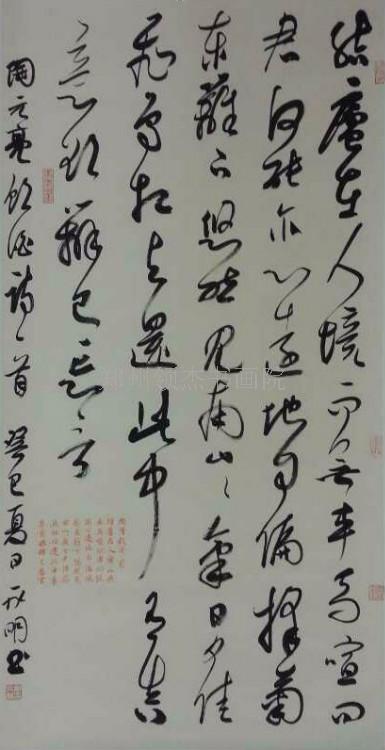 結廬在人境而無車馬喧問
君何能尔心遠地自偏採菊
東籬下悠然見南山〻氣日夕佳
飛鳥相與還此中有真
意欲辯已忘言
陶元亮飲酒詩一首 癸巳夏日 明書
郑州领杰书画院